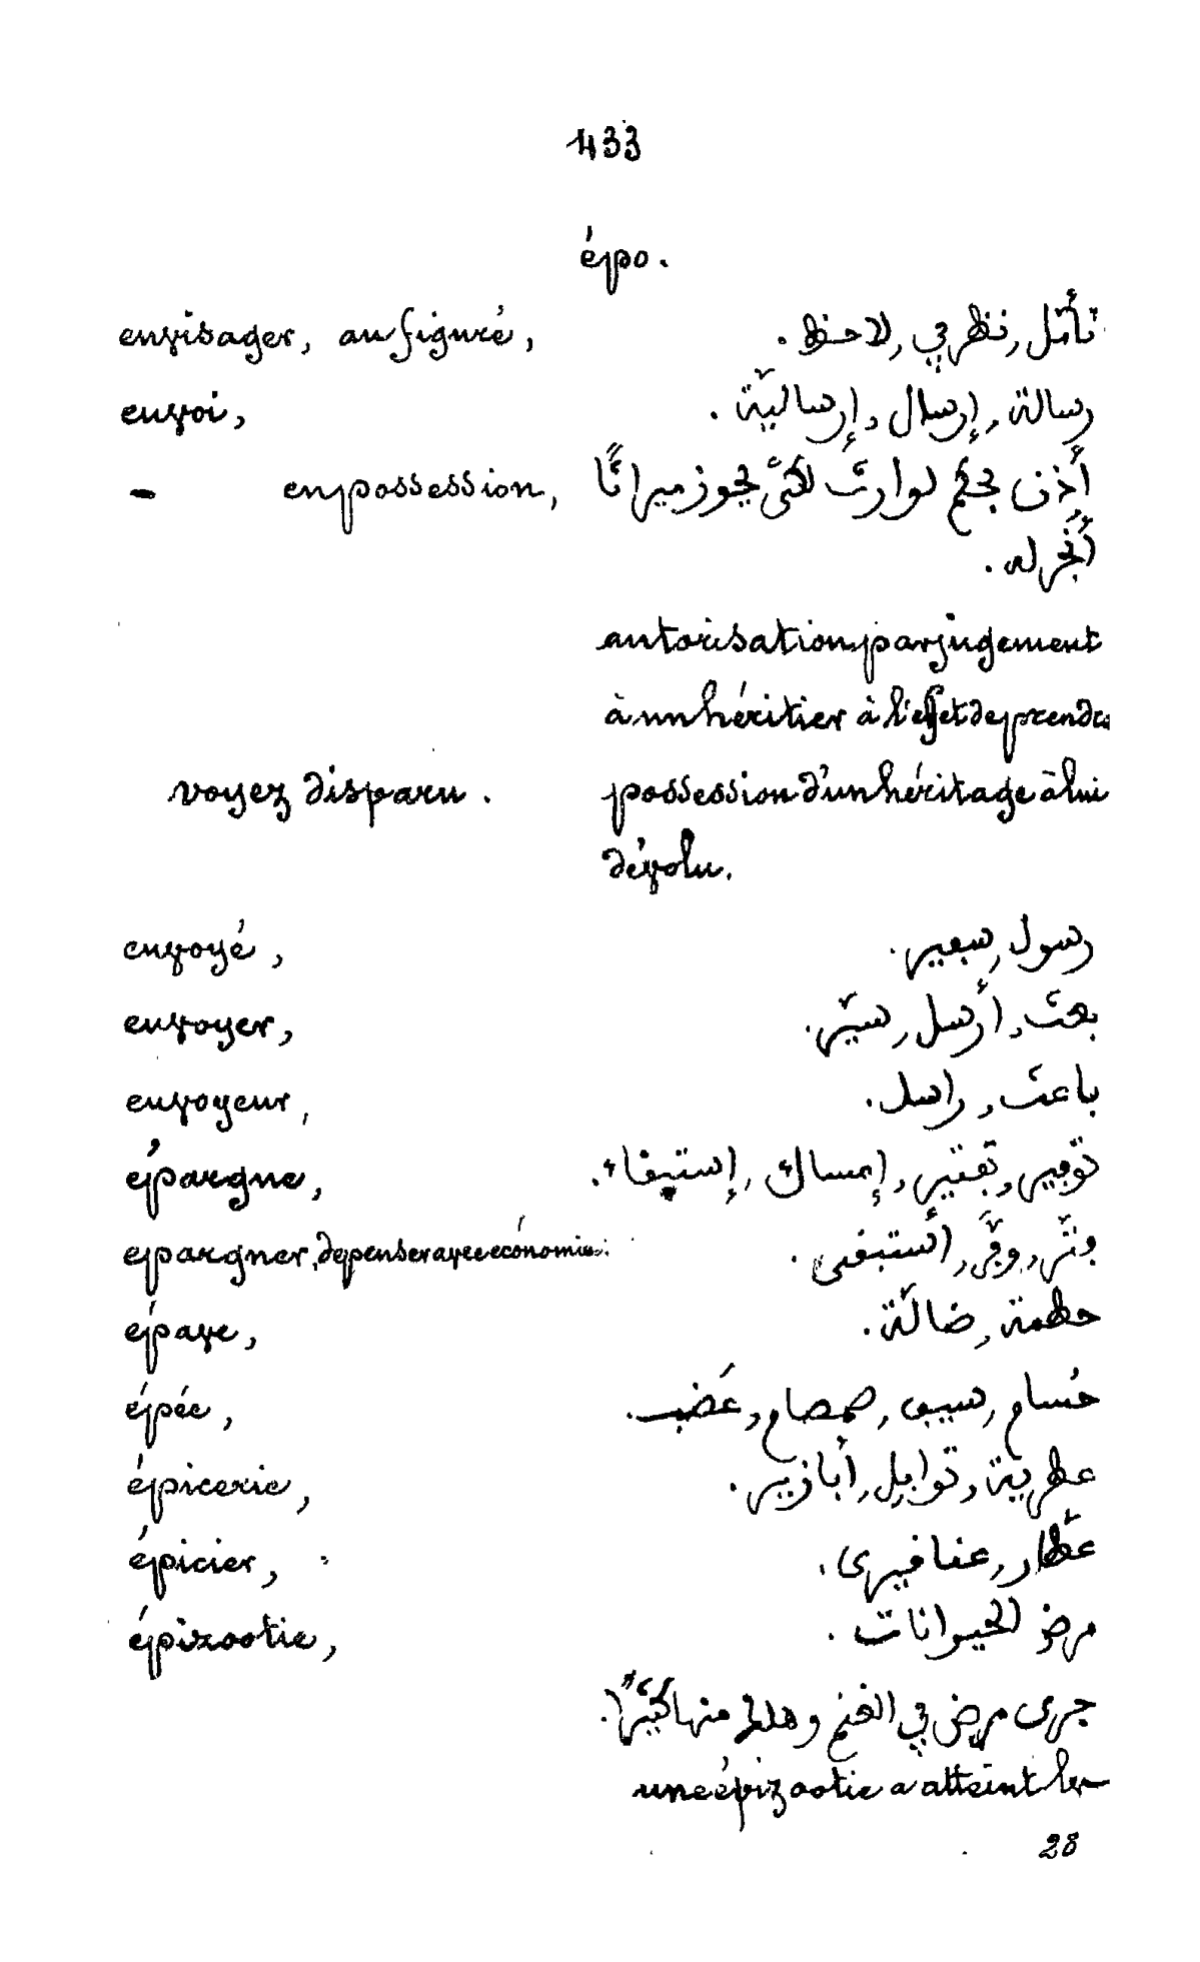 433
épo.
envisager, au figuré, تأمّل, نظر في, لاحظ.
envoi, رسالة, إرسال, إرساليّة.
- en possession, أذن بحكم لوارث لكيّ يحوز ميراثًا
أنجرّ له.
autorisation par jugement
à un héritier à l'effet de prendre
voyez disparu. possession d'un héritage à lui
dévolu.
envoyé, رسول, سفير.
envoyer, بعث, أرسل, سيّر.
envoyeur, باعث, راسل.
épargne, توفير, تقتير, إمساك, إستبقاء.
epargner, depenser avec économie. وتّر, وفّر, أستبقى.
épave, حطمة, ضالّة.
épée, حُسام, سيف, صمصام, عَضب.
épicerie, عطرية, توابل, أبازير.
épicier, عطّار, عفافيرى.
épizootie, مرض الحيوانات.
جرى مرض في الغنم وهلك منها كثيرًا.
une épizootie a atteint les
28